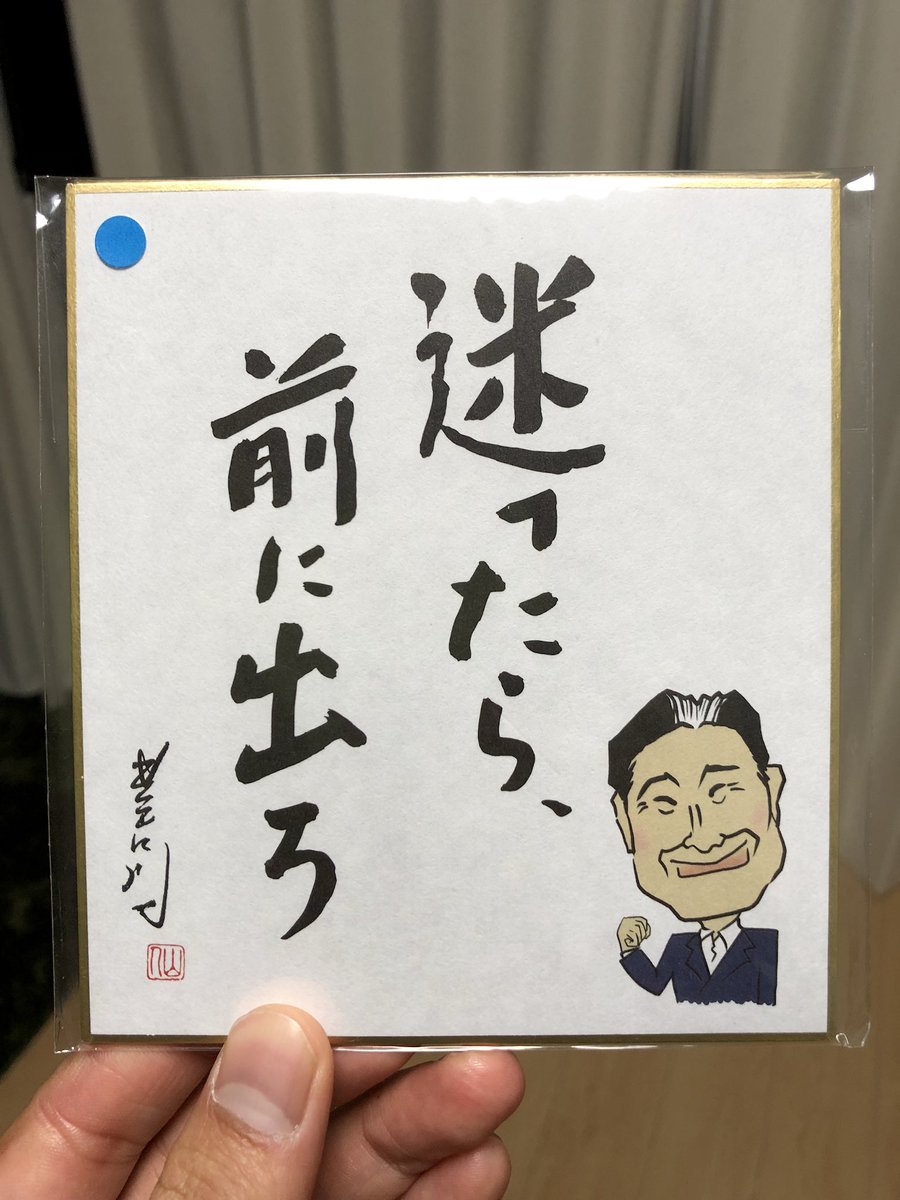 迷ったら、
前に出ろ